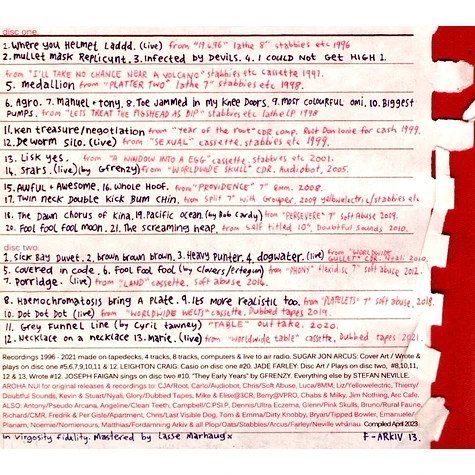 disc one.
1. Where you Helmet Laddd. (Live) from "19.4.96" lathe 8" stabbies etc 1996
2. mullet mask Replicunt. 3. Infected by Devils. 4. I could Not Get HIGH 1.
from "I'LL TAKE NO CHANCE NEAR A VOLCANO" stabbies etc cassette 1997.
5. medallion from "PLATTER TWO" lathe 7" stabbies etc 1998.
6. Agro. 7. Manuel + tony. 8. Toe Jammed in my Knee Doors. 9. Most colourful omi. 10. Biggest
PUMPS. from "LETS TREAT THE PIGSHEAD AS BIP" stabbies etc lathe LP 1998
11. Ken treasure/negotiation from "Year of the Root" CDR comp. Root Don Lonie for cash 1999.
12. De worm silo. (Live) from "SEXUAL" cassette. stabbies etc, 1999.
13. Lisk yes. from "A WINDOW INTO A EGG" cassette. stabbies etc 2001.
14. Stars. (live) (by Gfrenzy) from "WORLDWIDE SKULL" CDR. Audiobot, 2005.
15. Awful + Awesome. 16. Whole Hoof. from "PROVIDENCE" 7" 8mm. 2008.
17. Twin neck Double Kick Bum Chin. from split 7" with Grouper. 2009 yellowelectric/stabbies etc
18. The Dawn Chorus of Kina. 19. Pacific ocean. (by Bob Cardy) from "PERSEVERE" 7" Soft Abuse 2009.
20. Fool Fool Fool moon. 21. The screaming heap. from self titled 10", Doubtful Sounds 2010.
disc two.
1. Sick Bay Duvet. 2. brown brown brown. 3. Heavy Punter. 4. dogwater. (live) from "WORLDWIDE GULLET" CDR. Nyali 2010.
5. Covered in code. 6. fool fool fool (by Clovers/ertegun) from "PHONY" flexidisc 7" soft abuse 2012.
7. Porridge. (live) from "LAND" cassette. soft abuse, 2016.
8. Haemochromatosis bring A plate. 9. Its more realistic too. from "PLATELETS" 7" soft abuse, 2018.
10. Dot Dot Dot (live) from "WORLDWIDE WELTS" cassette. Dubbed tapes 2019.
11. Grey Funnel Line (by Cyril tawney) "TABLE" out take. 2020.
12. Necklace on a necklace 13. Marie. (live) from "worldwide table" cassette, Dubbed tapes 2021.
Recordings 1996 - 2021 made on tapedecks, 4 tracks, 8 tracks, computers & live to air radio. SUGAR JON ARCUS: Cover Art / Wrote &
plays on disc one #5,6,7,9,10,11 & 12. LEIGHTON CRAIG. Casio on disc one #20. JADE FARLEY. Disc Art / Plays on disc two, #8,10,11,
12 & 13, Wrote #12. JOSEPH FAIGAN sings on disc two #10. "They Early Years" by GFRENZY. Everything else by STEFAN NEVILLE.
AROHA NUI for original releases & recordings to: CJA/Root, Carlo/Audiobot, Chris/Soft Abuse, Luca/8MM, Liz/Yellowelectric, Thierry/
Doubtful Sounds, Kevin & Stuart/Nyali, Glory/Dubbed Tapes, Mike & Elise@3CR, Berry@VPRO, Chabs & Milky, Jim Nothing, Arc Cafe.
ALSO: Antony/Pseudo Arcana, Angeline/Clean Teeth, Campbell/CPSLP, Dennis/Ultra Eczema, Glenn/Pink Skulls, Bruno/Rural Faune,
Richard/CMR, Fredrik & Per Gisle/Apartment, Chris/Last Visible Dog, Tom & Emma/Dirty Knobby, Bryan/Tipped Bowler, Emanuele/
Planam, Noemie/Nomienours, Matthias/Fordamning Arkiv & all Plop/Oats/Stabbies/Arcus/Farley/Neville whānau. Compiled April 2023
In virgosity fidelity. Mastered by Lasse Marhaug x F-ARKIV 13.